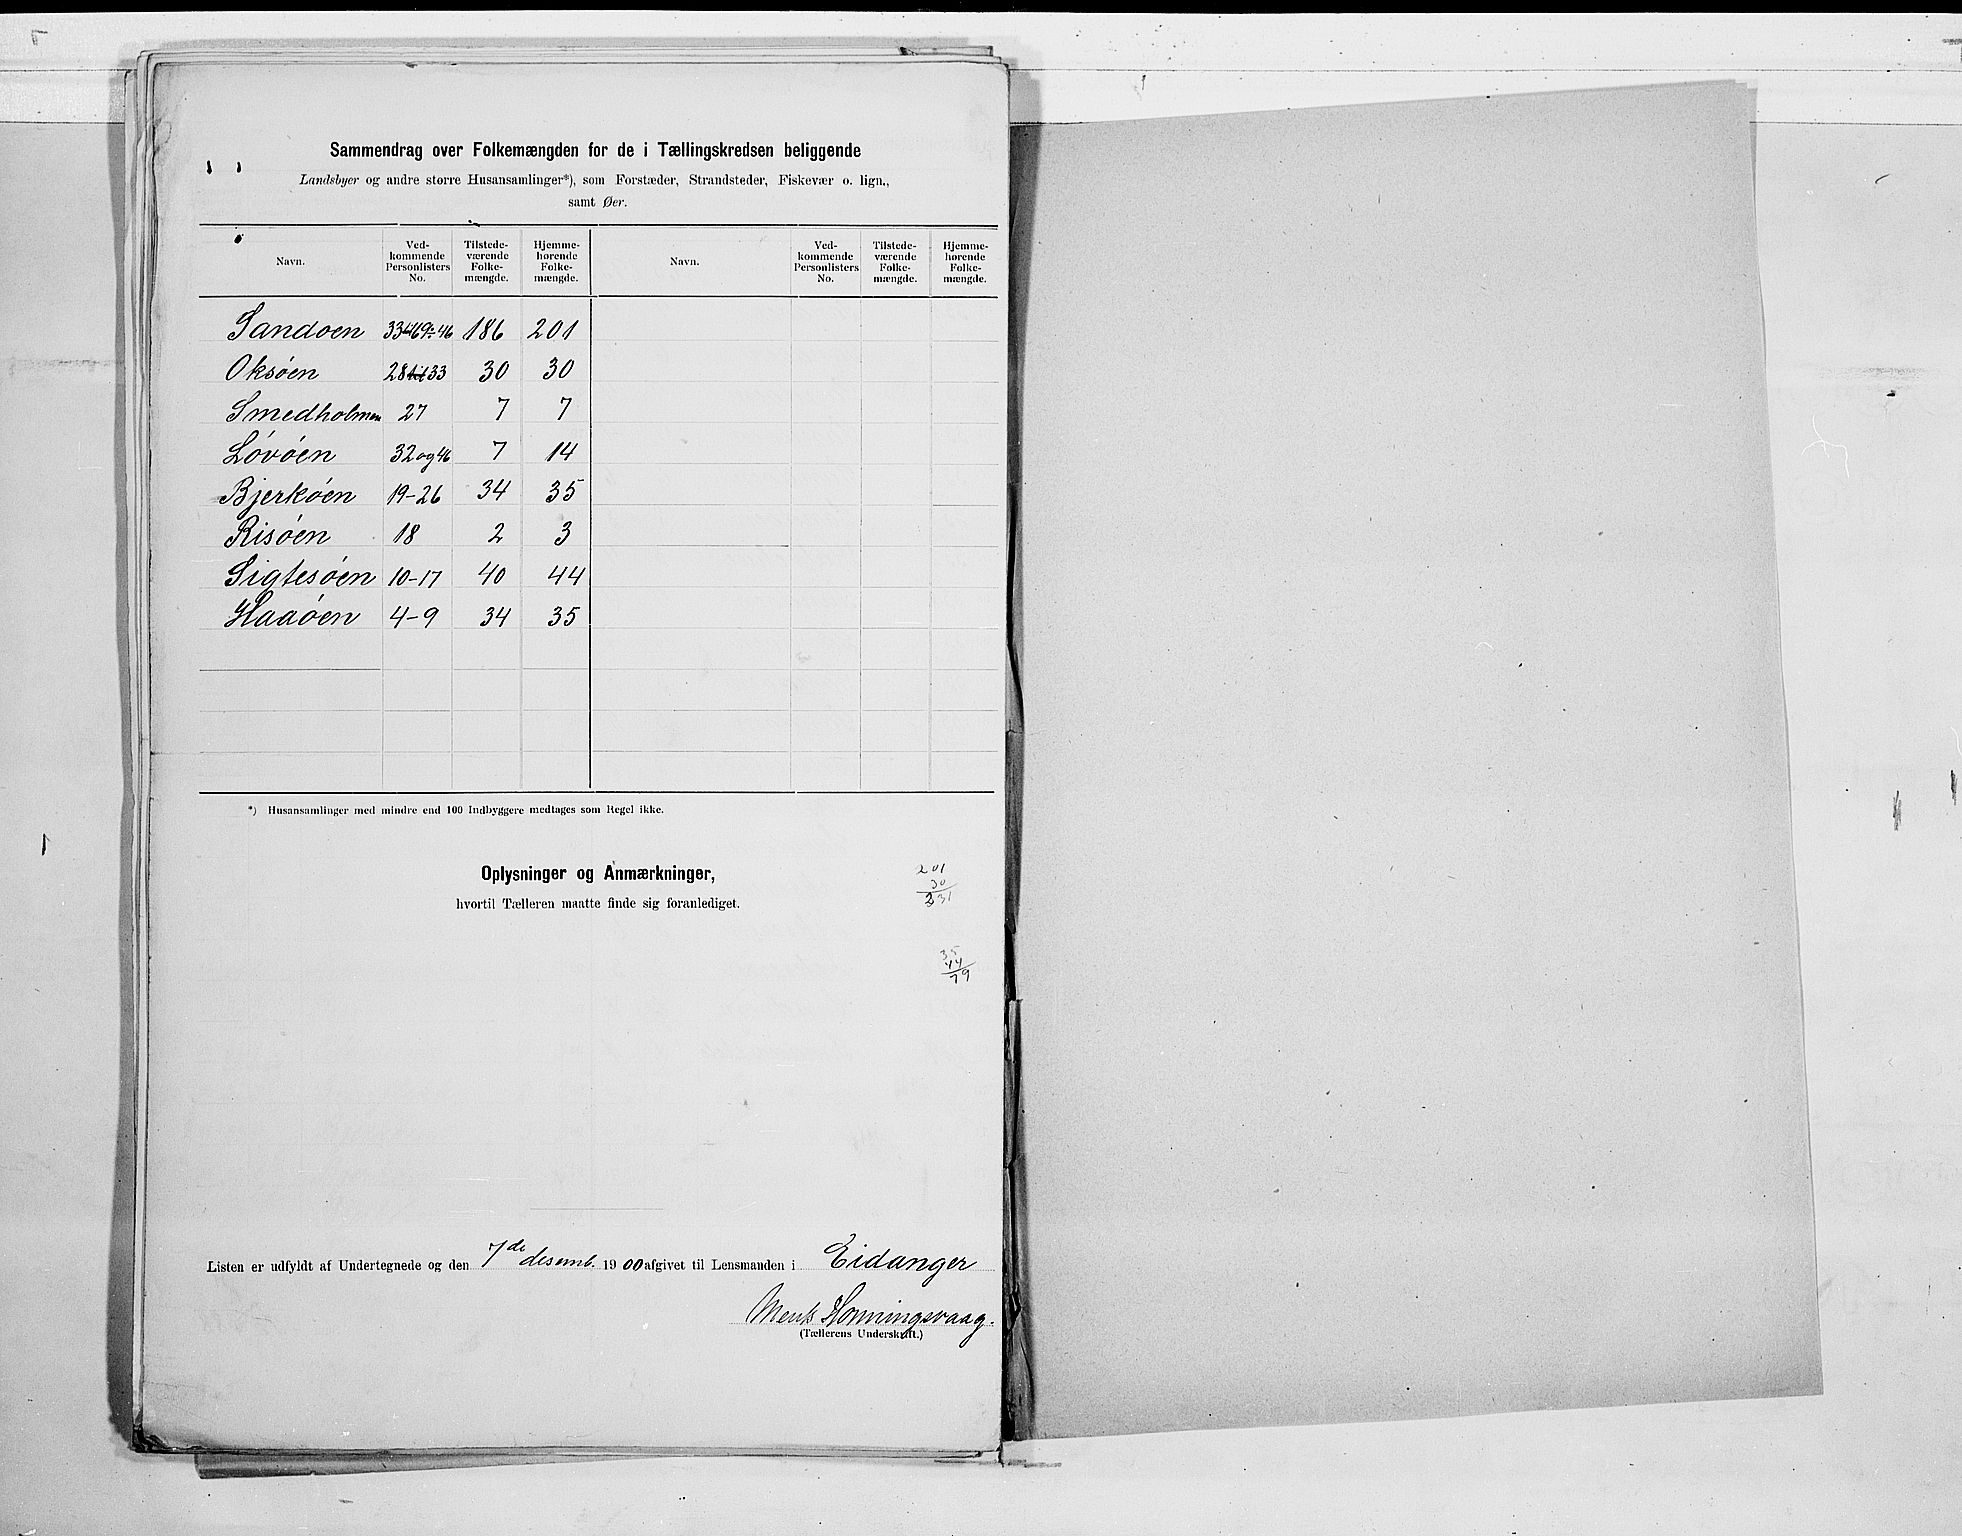 Sammendrag over Folkemængden for de i Tællingskredsen beliggende
Landsbyer og andre større Husansamlinger*), som Forstæder, Strandsteder, Fiskevær o. lign.,
samt Øer.
Navn. Ved-kommende Personlisters No. Tilstede-værende Folke-mængde. Hjemme-hørende Folke-mængde. Navn. Ved-kommende Personlisters No. Tilstede-værende Folke-mængde. Hjemme-hørende Folke-mængde.
Sandoen 186 201
Oksóen 28 til 33 30 30
Smedholmen 27 7 7
Lóvóen 32 og 46 7 14
Bjerkóen 19-26 34 35
Risóen 18 2 3
Sigtesóen 10-17 40 44
Haaóen 4-9 34 35
*) Husansamlinger med mindre end 100 Indbyggere medtages som Regel ikke.
Oplysninger og Anmærkninger,
hvortil Tælleren maatte finde sig foranlediget.
201
30
231
35
44
79
Listen er udfyldt af Undertegnede og den 7de desemb. 1900 afgivet til Lensmanden i Eidanger
Honningsvaag.
(Tællerens Underskrift.)